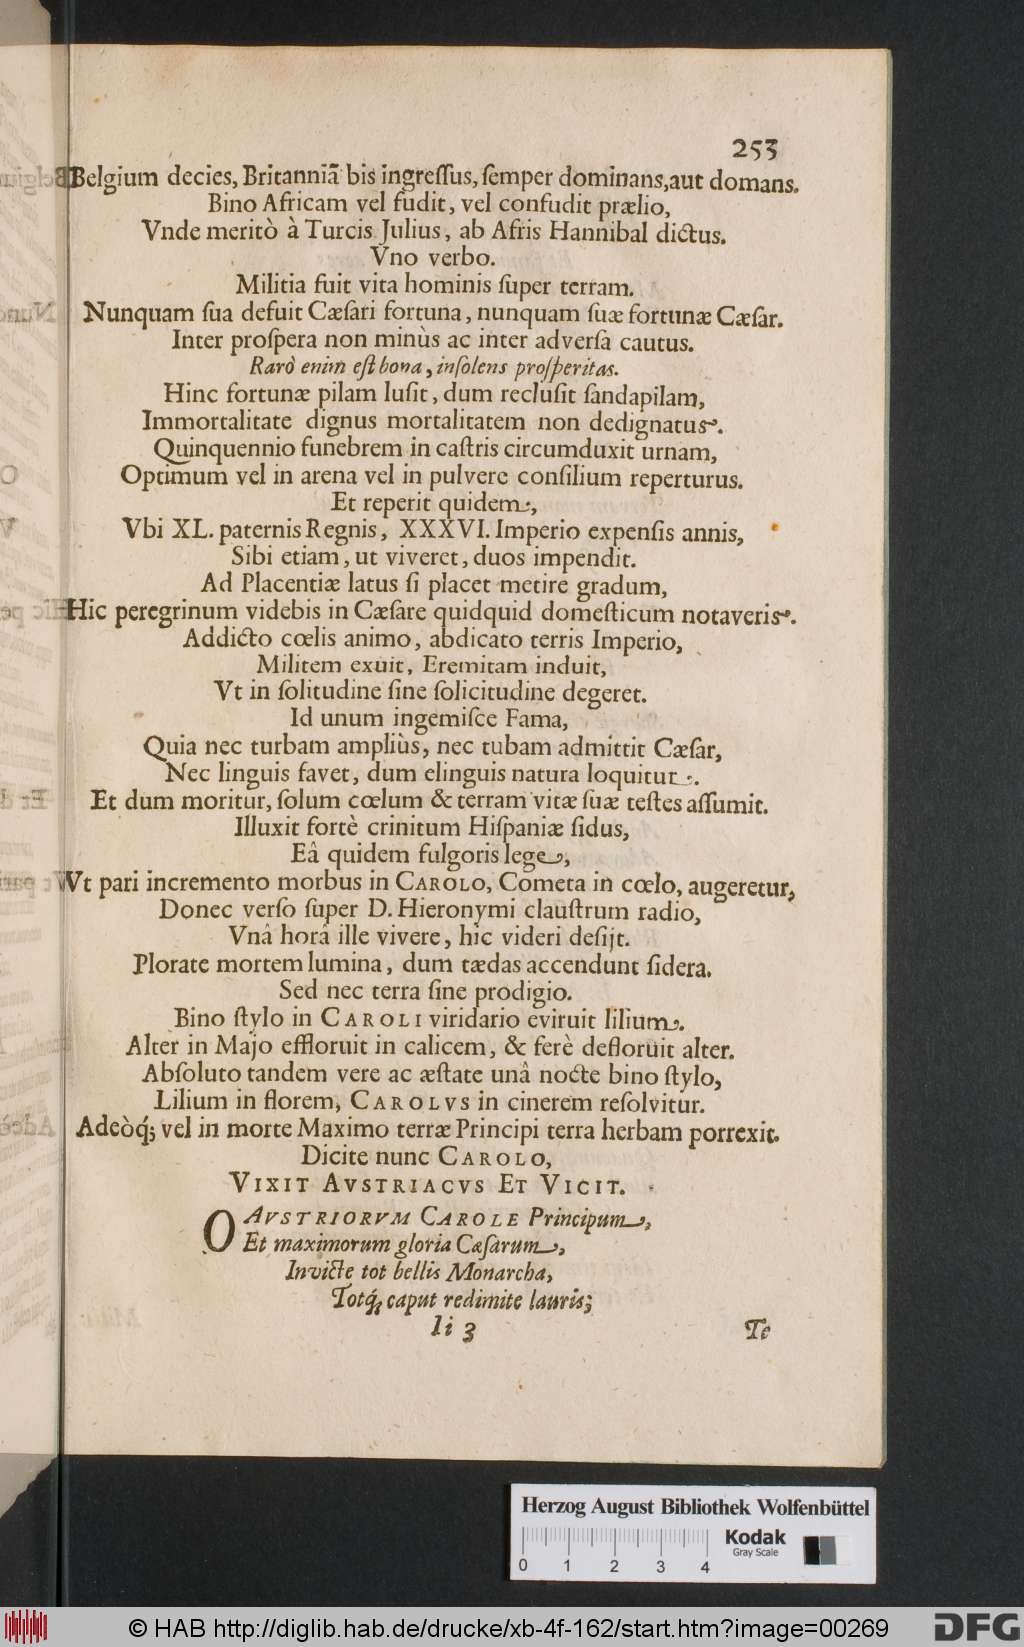 253
Belgium decies, Britanniã bis ingreſſus, ſemper dominans, aut domans.
Bino Africam vel fudit, vel confudit prælio,
Vnde meritò à Turcis Julius, ab Afris Hannibal dictus.
Vno verbo.
Militia fuit vita hominis ſuper terram.
Nunquam ſua defuit Cæſari fortuna, nunquam ſuæ fortunæ Cæſar.
Inter proſpera non minùs ac inter adverſa cautus.
Rarò enim eſt bona, inſolens proſperitas.
Hinc fortunæ pilam luſit, dum recluſit ſandapilam,
Immortalitate dignus mortalitatem non dedignatus.
Quinquennio funebrem in caſtris circumduxit urnam,
Optimum vel in arena vel in pulvere conſilium reperturus.
Et reperit quidem,
Vbi XL. paternis Regnis, XXXVI. Imperio expenſis annis,
Sibi etiam, ut viveret, duos impendit.
Ad Placentiæ latus ſi placet metire gradum,
Hic peregrinum videbis in Cæſare quidquid domeſticum notaveris.
Addicto cœlis animo, abdicato terris Imperio,
Militem exuit, Eremitam induit,
Vt in ſolitudine ſine ſolicitudine degeret.
Id unum ingemiſce Fama,
Quia nec turbam ampliùs, nec tubam admittit Cæſar,
Nec linguis favet, dum elinguis natura loquitur.
Et dum moritur, ſolum cœlum & terram vitæ ſuæ teſtes aſſumit.
Illuxit fortè crinitum Hiſpaniæ ſidus,
Eâ quidem fulgoris lege,
Vt pari incremento morbus in CAROLO, Cometa in cœlo, augeretur,
Donec verſo ſuper D. Hieronymi clauſtrum radio,
Vnâ horâ ille vivere, hic videri deſijt.
Plorate mortem lumina, dum tædas accendunt ſidera.
Sed nec terra ſine prodigio.
Bino ſtylo in CAROLI viridario eviruit lilium.
Alter in Majo effloruit in calicem, & ferè defloruit alter.
Abſoluto tandem vere ac æſtate unâ nocte bino ſtylo,
Lilium in florem, CAROLVS in cinerem reſolvitur.
Adeòq́; vel in morte Maximo terræ Principi terra herbam porrexit.
Dicite nunc CAROLO,
VIXIT AVSTRIACVS ET VICIT.
O AVSTRIORVM CAROLE Principum,
Et maximorum gloria Cæſarum,
Invicte tot bellis Monarcha,
Totq́; caput redimite lauris;
Ii 3
Te
Herzog August Bibliothek Wolfenbüttel
0 1 2 3 4
Kodak
Gray Scale
© HAB http://diglib.hab.de/drucke/xb-4f-162/start.htm?image=00269
DFG